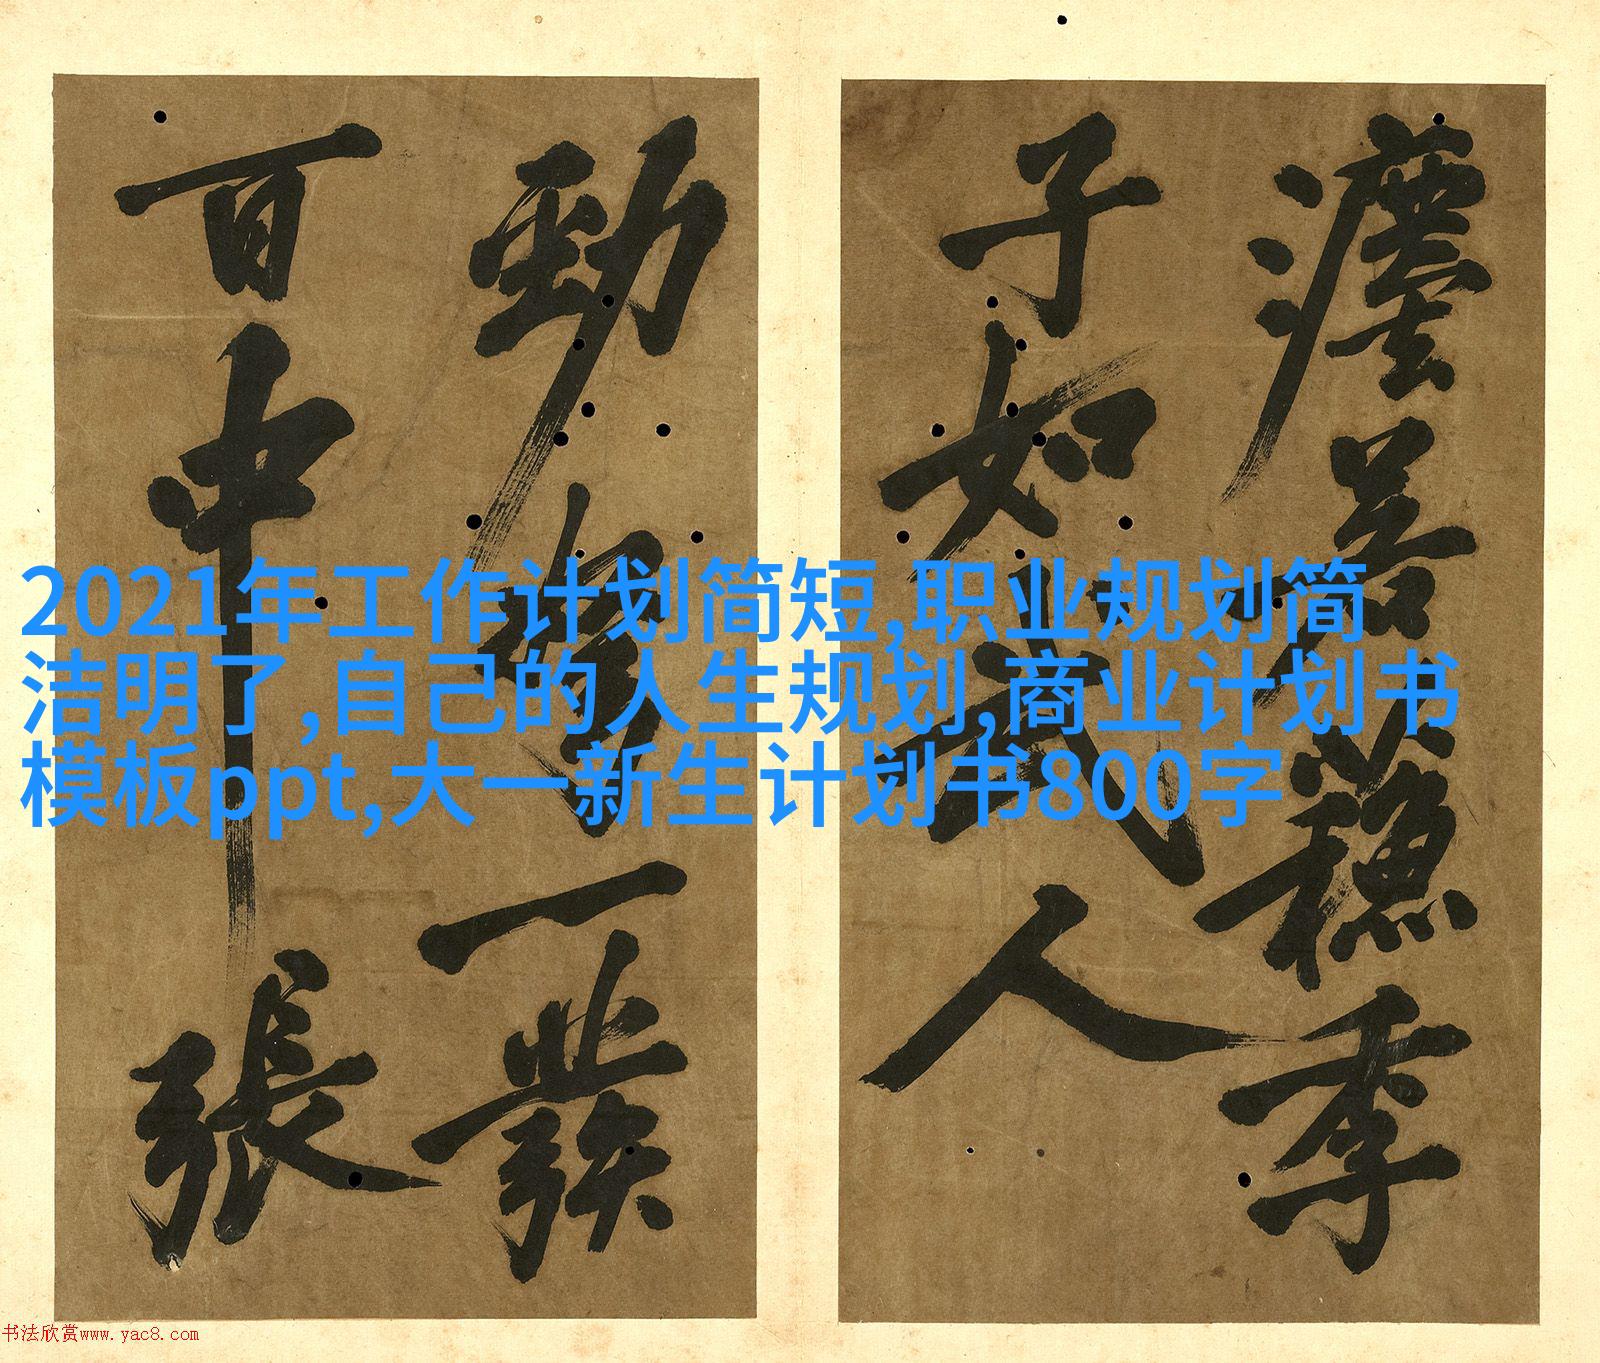 2021年工作计划简短,职业规划简
洁明了,自己的人生规划,商业计划书
模板ppt,大一新生计划书800字
季
子如武人
勁一發
百中張
书法欣赏www.yac8.com